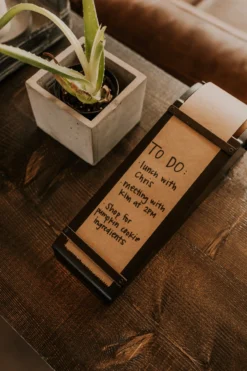 TO DO:
lunch with
Chris
meeting with
Kim at 2PM
Shop for
pumpkin cookie
ingredients